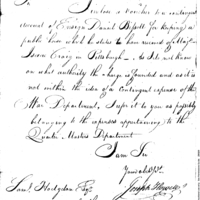 I enclose a voucher to a contingent
account of Ensign Daniel Bissell for keeping a
public
Isaac Craig in Pittsburgh — as I do not know
on what authority the charge is founded and as it is
not within the idea of a contingent expense of the
War Department, I refer it to you as possibly
belonging to the expenses appertaining to the
Quarter Masters Department
I am Sir
Joseph Howell
Saml. Hodgdon Esqr.